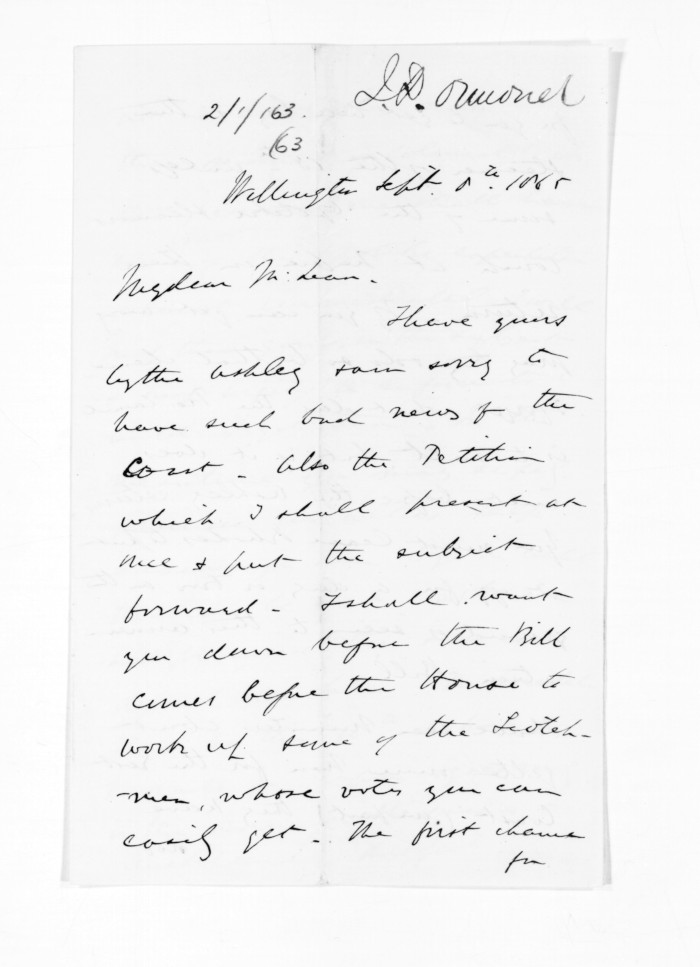 J.D. Ormond
2/1/163.
(63
Wellington Sept. 8th. 1865
My dear McLean.
I have yours
by the Ashley & am sorry to
have such bad news of the
Coast - Also the Petition
which I shall present at
once & put the subject
forward - I shall want
you down before the Bill
comes before the House to
work up some of the Scotch-
-men, whose votes you can
easily get - The first chance
for